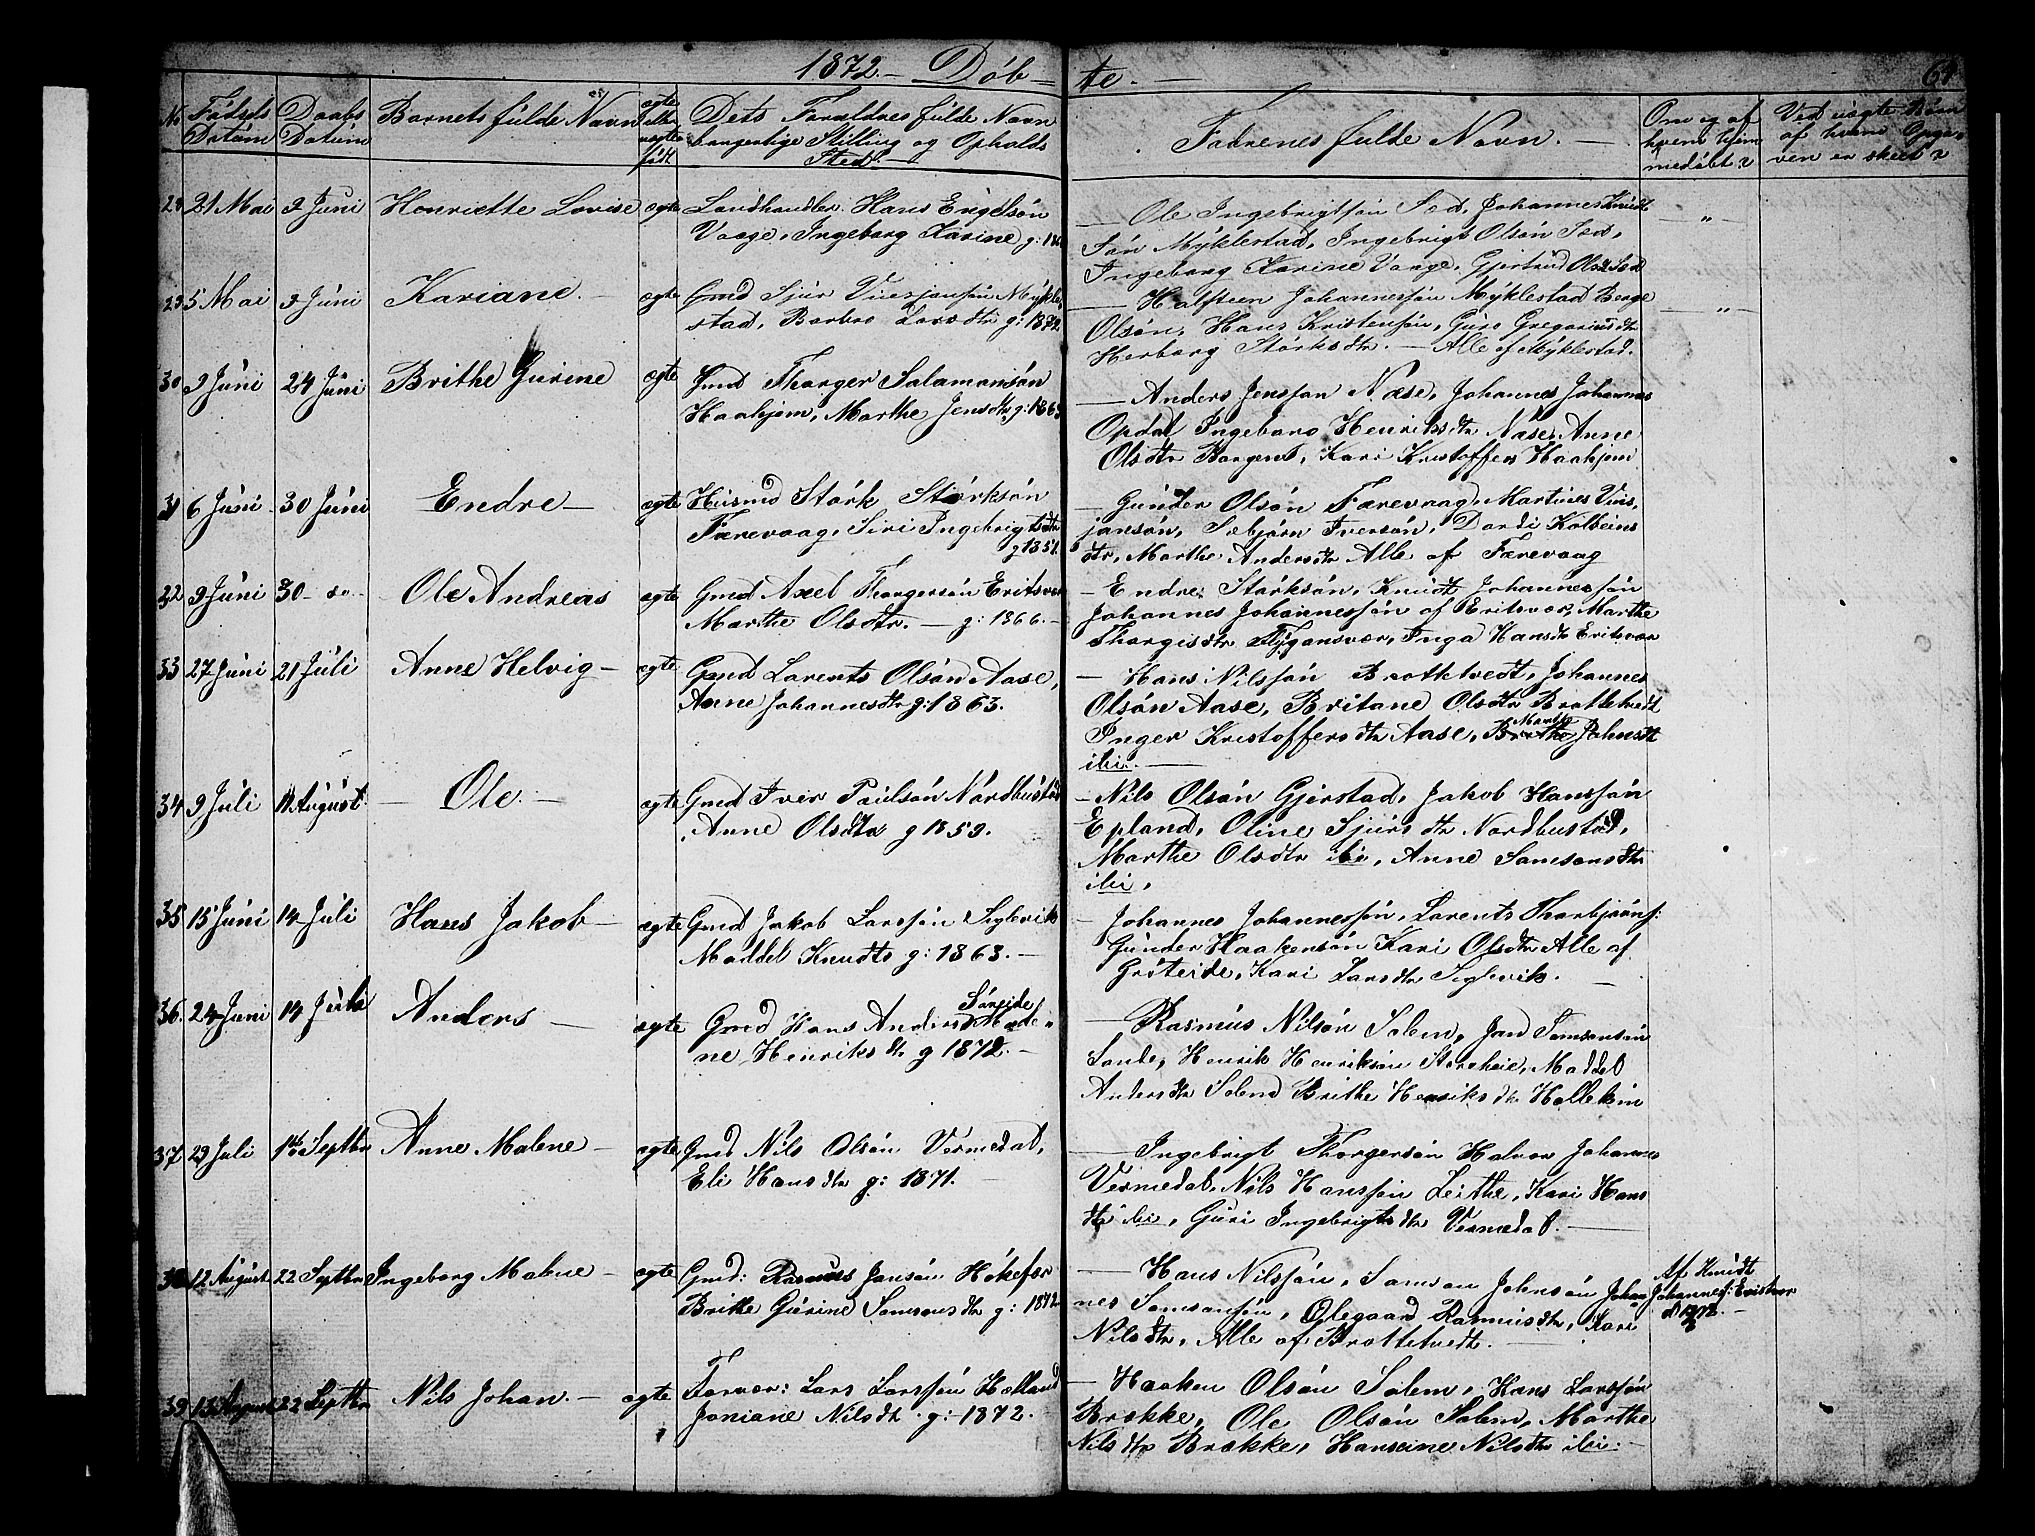 1872. — Döb — te. —
64
No Fødsels Datum
Daabs Datum
Barnets fulde Navn
ægte eller uægte født
Dets Forældres fulde Navn borgerlige Stilling og Opholds Sted. —
Fadrenes fulde Navn. —
Om og af hvem hjemmedøbt?
Ved uægte Børn af hvem Opgaven er skeet?
21 Mai 9 Juni Henriette Lovise ægte Landhandler Hans Engelsön
Vaage, Ingeborg Karine
— Ole Ingebrigtsön Sæd, Johannes Knudt
sön Myklestad, Ingebrigt Olsön Sæd,
Ingeborg Karine Vaage, Gjertrud Olsd Sæd
5 Mai 9 Juni Kariane. — ægte Gmd Sjur Myklestad, Barbro Larsdtr g: 1872
— Halsteen Johannessön Myklestad Berge
Olsön, Hans Kristensön, Guro Gregoriusdtr
Herborg Störksdtr. — Alle af Myklestad.
30 9 Juni 24 Juni Brithe Gurine ægte Gmd Thorger Salamonsön
Haahjem, Marthe Jensdtr g: 1863
— Anders Jensson Næse, Johannes Johannes
Opdal Ingeborg Henriksdtr Næse, Anne
Olsdtr Borgund, Kari Kristoffers Haahjem
31 6 Juni 30 Juni Endre — ægte Husmd Störk Störksön
Færevaag, Siri Ingebrigtsdtr
g 1851.
— Gunder Olsön Færevaag, Martines Vins
jansön, Sebjörn Iversön, Dordi Kolbeins
dtr, Marthe Andersdtr Alle af Færevaag
32 9 Juni 30 — do — Ole Andreas ægte Gmd Axel Thorgersön Eritsvær
Marthe Olsdtr. — g: 1866. —
— Endre Störksön, Knudt Johannessön
Johannes Johannessön af Eritsvær, Marthe
Thorgisdtr Flyganvær, Inga Hansdtr Eritsvær
33 27 Juni 21 Juli Anne Helvig — ægte Gmd Larents Olsön Aase,
Anne Johannesdtr g: 1863.
— Hans Nilssön Brattetvedt, Johannes
Olsön Aase, Britane Olsdtr Brattetvedt
Inger Kristoffersdtr Aase, Brithe Johnsdtr
ibi. —
34 9 Juli 11 August — Ole. — ægte Gmd Iver Paulsön Nordhustad
Anne Olsdtr g 1859.
— Nils Olsön Gjerstad, Jakob Hanssön
Epland, Oline Sjursdtr Nordhustad,
Marthe Olsdtr ibi, Anne Samsonsdtr
ibi.
35 15 Juni 14 Juli Hans Jakob — ægte Gmd Jakob Larssön Siglevik
Maddel Knudts g: 1863. —
— Johannes Johannessön, Larents Thorbjörns:
Gunder Haakensön Kari Olsdtr Alle af
Gröteide, Kari Larsdtr Siglevik. —
36. 24 Juni 14 Juli Anders — ægte Gmd Hans Anders Söreide Made-
ne Henriksdtr g 1872. —
— Rasmus Nilsön Solem, Jon Samsonsön
Sande, Henrik Henriksön Storheie, Maddel
Andersdtr Solem Brithe Henriksdtr Hollekim
37 29 Juli Septbr Anne Malene — ægte Gmd Nils Olsön Vermedal,
Eli Hansdtr g: 1871. —
— Ingebrigt Thorgersön Halvor Johannes
Vermedal, Nils Hanssön Leithe, Kari Hans
dtr ibi, Guri Ingebrigtsdtr Vermedal. —
38 12 August 22 Septbr Ingeborg Malene — ægte Gmd: Rasmus Jansön
Brithe Gurine Samsonsdtr g: 1872
— Hans Nilssön, Samson Johnsön Johan
nes Samsonsön, Olegaard Rasmusdtr, Kari
Nilsdtr, Alle af Brattetvedt. —
Af Knudt
Johannes: Eritsvær
39 August 22 Septbr Nils Johan. — ægte Forvær: Lars Larssön Hælland
Joniane Nilsdtr g: 1872. —
— Haaken Olsön Solem, Hans Larssön
Brække, Ole Olsön Solem, Marthe
Nilsdtr Brække, Hanseine Nilsdtr ibi: —